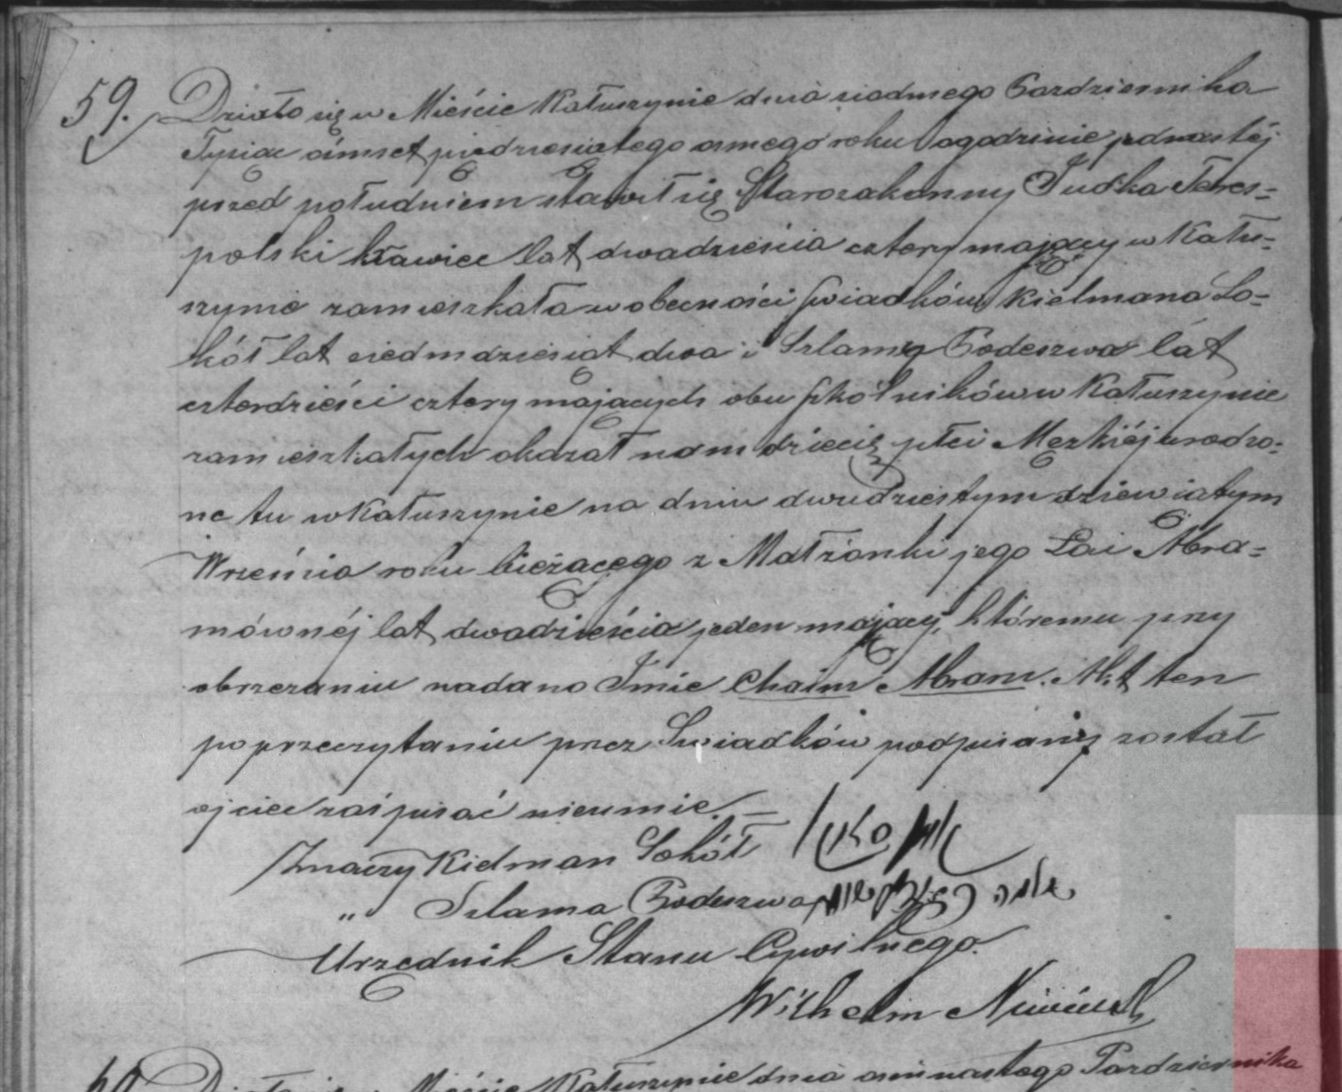 59. Działo się w Mieście Kałuszynie dnia siodmego Pazdziernika
Tysiac ośmset piędziesiatego osmego roku o godzinie jednastéj
przed południem stawił się Starozakonny Judka Teres=
polski krawiec lat dwadzieścia cztery mający w Kału=
szynie zamieszkała w obecności świadków Kielmana So=
kół lat siedmdziesiat dwa i Szlamy Podeszwa lat
czterdzieści cztery majacych obu szkólników w Kałuszynie
zamieszkałych okazał nam dziecię płci Męzkiéj urodzo=
ne tu w Kałuszynie na dniu dwudziestym dziewiatym
Września roku bieżącego z Małżonki jego Łai Abra=
mównéj lat dwadzieścia jeden mający, któremu przy
obrzezaniu nadano Imie Chaim Abram. Akt ten
po przeczytaniu przez Swiadków podpisany został
ojciec zaś pisać nieumie.—
Znaczy Kielman Sokół
" Szlama Podeszwa שלמה
Urzędnik Stanu Cywilnego.
Wilhelm
60 Działo się w Mieście Kałuszynie dnia osmnastego Pazdziernika